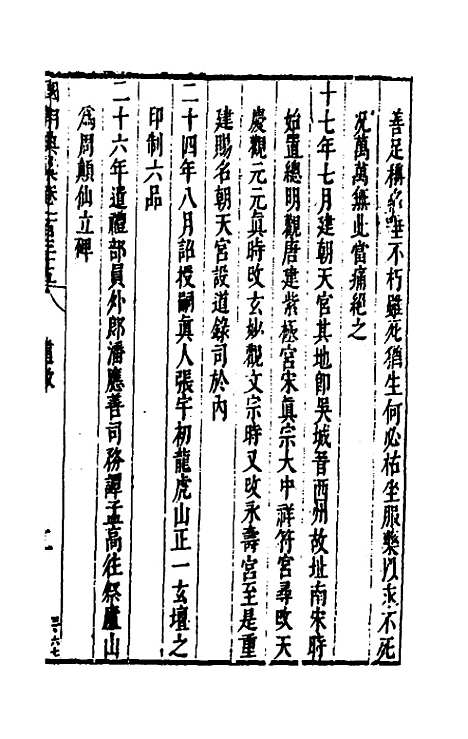 善足稱名垂不朽雖死猶生何必枯坐服藥以求不死
况萬萬無此當痛絕之
十七年七月建朝天宮其地即吳城晉西州故址南宋時
始置總明觀唐建紫極宮宋真宗大中祥符宮尋改天
慶觀元元真時改玄妙觀文宗時又改永壽宮至是重
建賜名朝天宮設道錄司於內
二十四年八月詔授嗣真人張宇初龍虎山正一玄壇之
印制六品
二十六年遣禮部員外郎潘應善司務譚孟高往祭廬山
為周顛仙立碑
國朝典彙卷